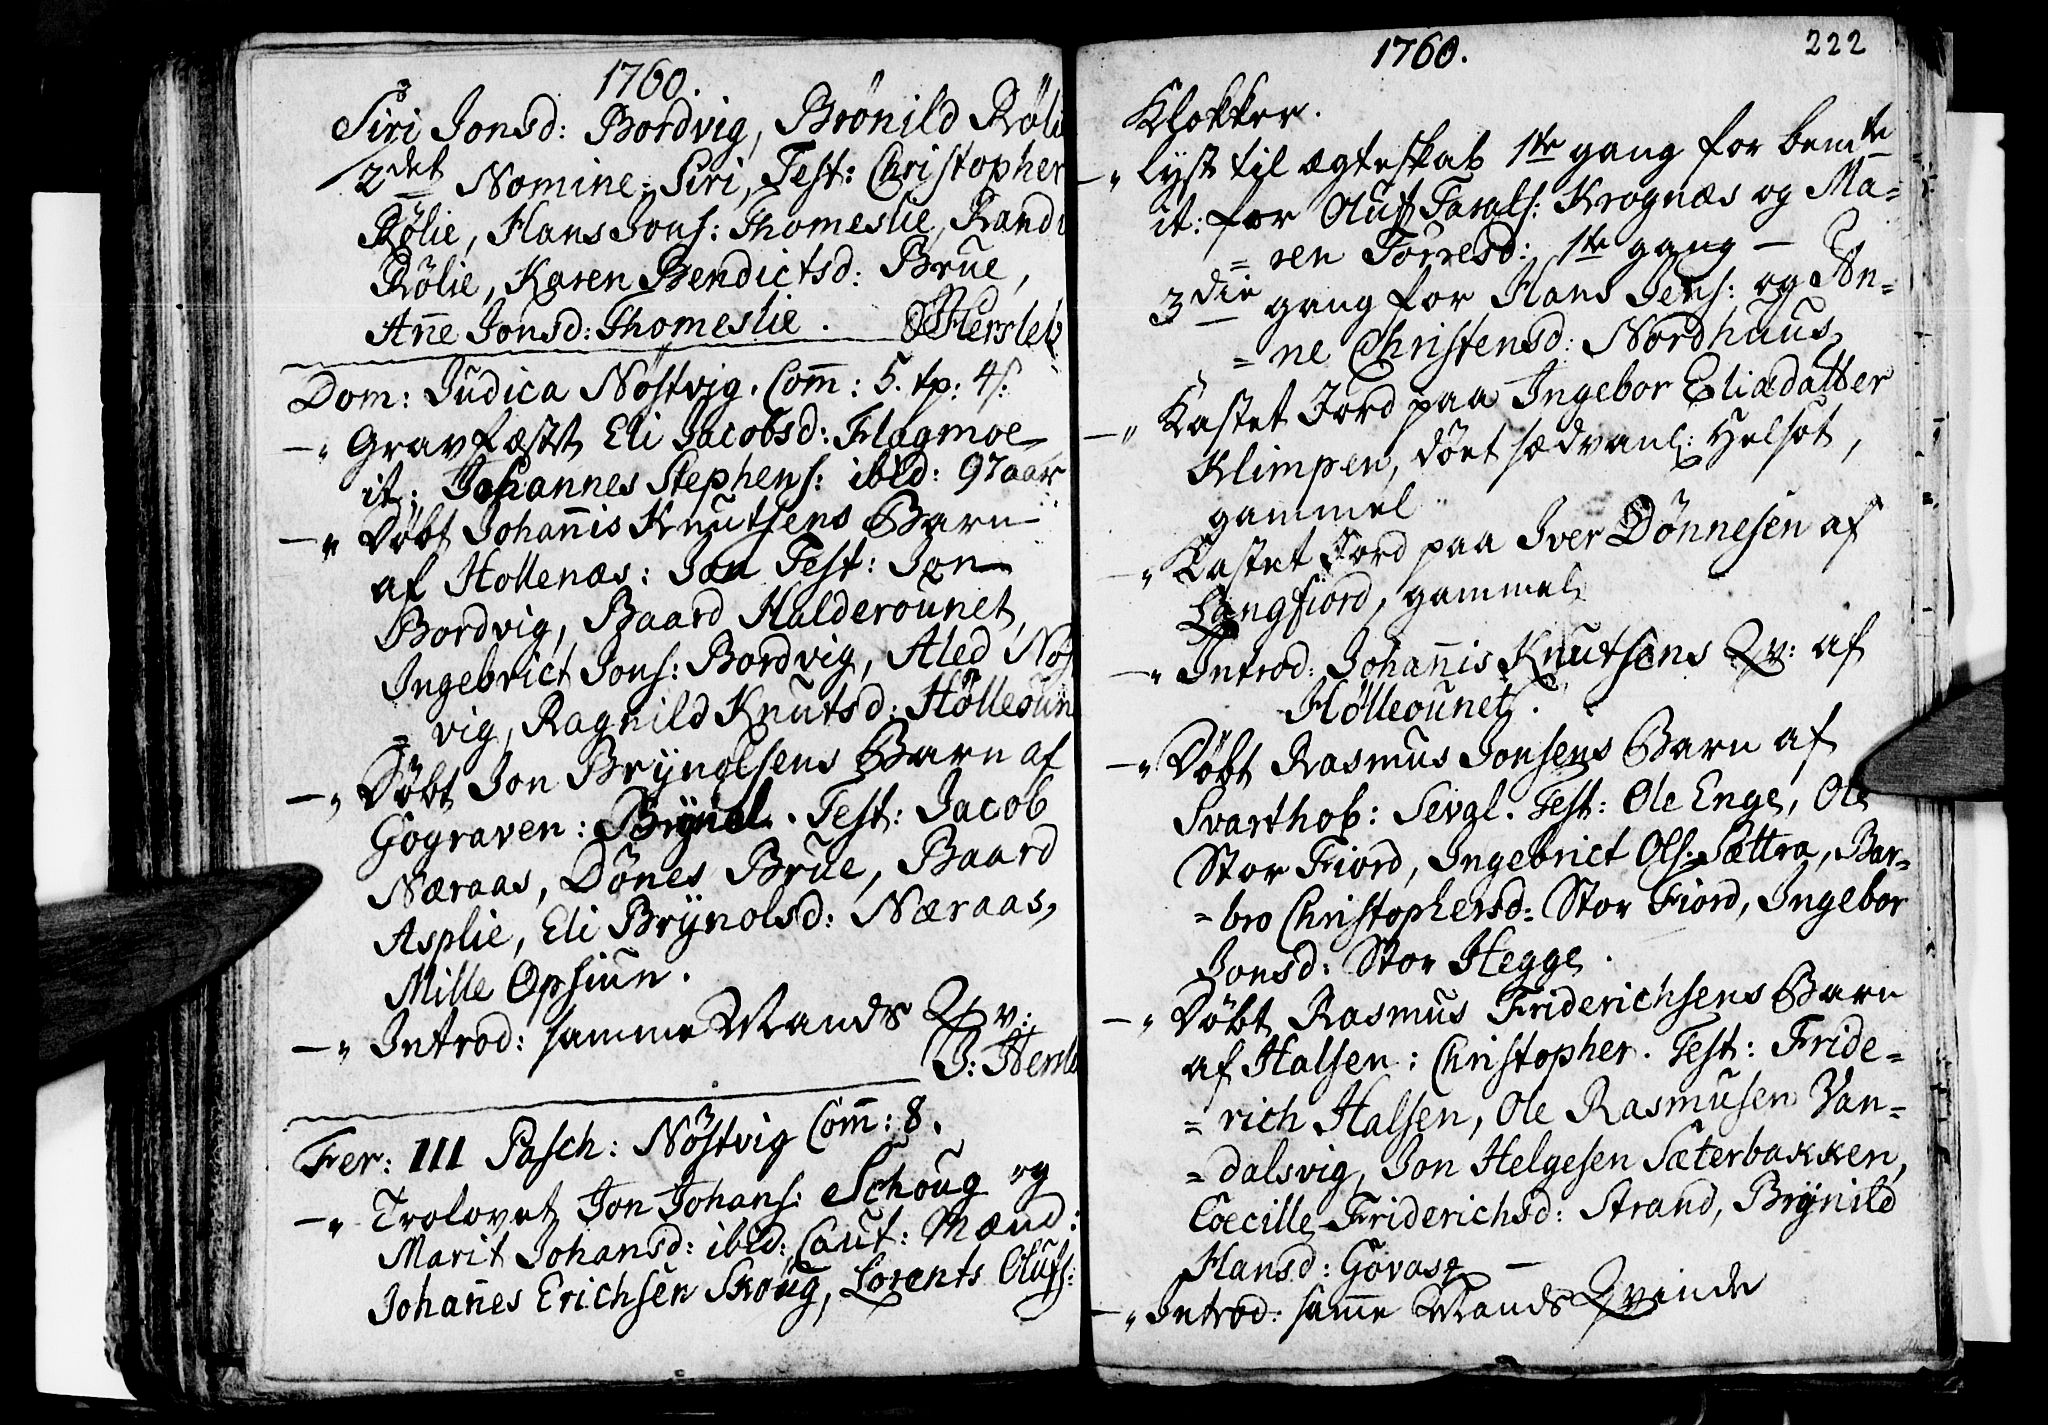 1760.
Siri Jonsd: Bordvig, Brönild Röli
2det Nomine: Siri, Test: Christopher
Rölie, Hans Jons: Thomeslie, Randi
Rölie, Karen Bendictsd: Brue,
Anne Jonsd: Thomeslie. Hersleb
Dom: Judica Nöstvig. Com̄: 5. tp: 4 s:
Gravfæstet Eli Jacobsd: Flagmoe
it: Johannes Stephens: ibid: 97 aar
Döbt Johannis Knutsens Barn
af Hollenæs: Jon Test: Jon
Bordvig, Baard Halderounet,
Ingebrict Jons: Bordvig, Aled Nöst
= vig, Ragnild Knutsd: Hölleoun
Döbt Jon Brÿnolsens Barn af
Gograven: Brÿnel. Test: Jacob
Næraas, Dönes Brue, Baard
Asplie, Eli Brÿnolsd: Næraas,
Mille Opsiun.
Introd: samme Mands Qv:
J: Hersleb
Fer: III Pasch: Nöstvig Com̄: 8.
Trolovet Jon Johans: Schoug og
Marit Johansd: ibid: Caut: Mænd:
Johanes Erichsen Skoug, Lorents Olufs:
1760. 222
Klokker.
lyst til ægteskab 1ste gang for bemte
it: for Oluf Tarals: Krognæs og Ma=
= ren Torresd: 1ste gang —
3die gang for Hans Jens: og An=
= ne Christensd: Nordhuus,
Kastet Jord paa Ingebor Eliædatter
Klimpen, döet sædvanl: Helsot,
gammel
Kastet Jord paa Iver Dönnesen af
Langfiord, gammel
Introd: Johannis Knutsens Qv: af
Hölleounet.
Döbt Rasmus Jonsens Barn af
Svarthob: Sevgl. Test: Ole Enge, Ole
Stor Fiord, Ingebrict Ols: Sættra, Bar=
= bro Christophersd: Stor Fiord, Ingebor
Jonsd: Stor Hegge.
Döbt Rasmus Friderichsens Barn
af Halsen: Christopher. Test: Fride=
= rich Halsen, Ole Rasmusen Van=
= dalsvig, Jon Helgesen Sæterbakken,
Coecille Friderichsd: Strand, Brÿnild
Hansd: Govas
Introd: samme Mands Qvinde